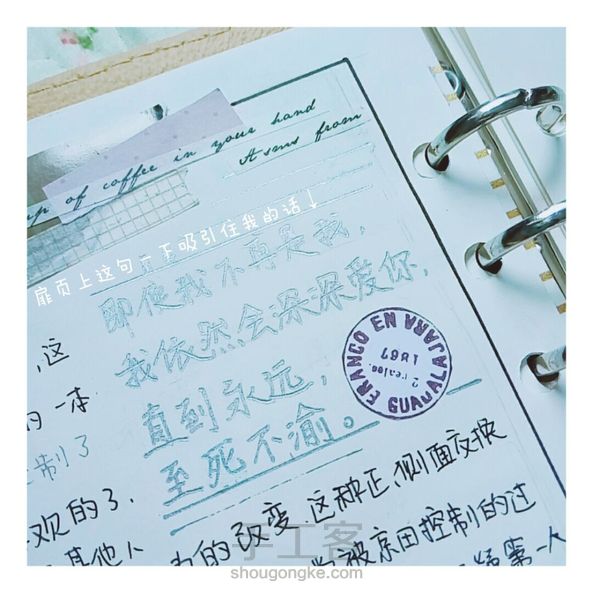 up of coffee in your hand
Asms from
扉页上这句一下吸引住我的话↓
即使我不再是我，
我依然会深深爱你，
直到永远，
至死不渝。
FRANCO EN GUADALAJARA
1867
2 reales
，这
的一本
制了
观的了，
其他人
的改变，这种正、侧面交换
被京田控制的过
第一人
手工客
shougongke.com